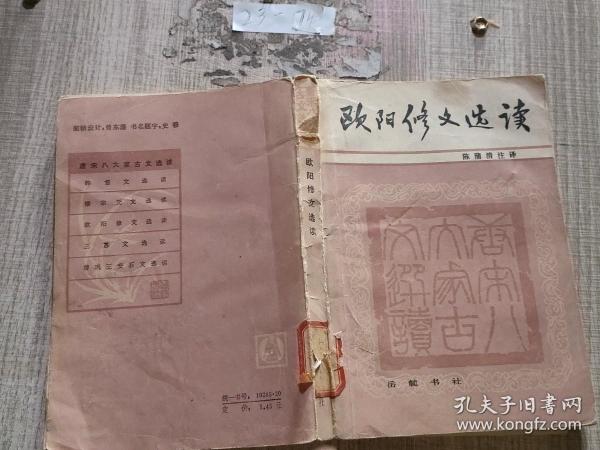 23-74
欧阳修文选读
陈蒲清注译
唐宋八
大家古
文选读
岳麓书社
欧阳修文选读
封面设计：蔡东藩 书名题字：史穆
唐宋八大家古文选读
韩愈文选读
柳宗元文选读
欧阳修文选读
三苏文选读
曾巩王安石文选读
统一书号：10285·20
定价：1.45元
孔夫子旧书网
www.kongfz.com